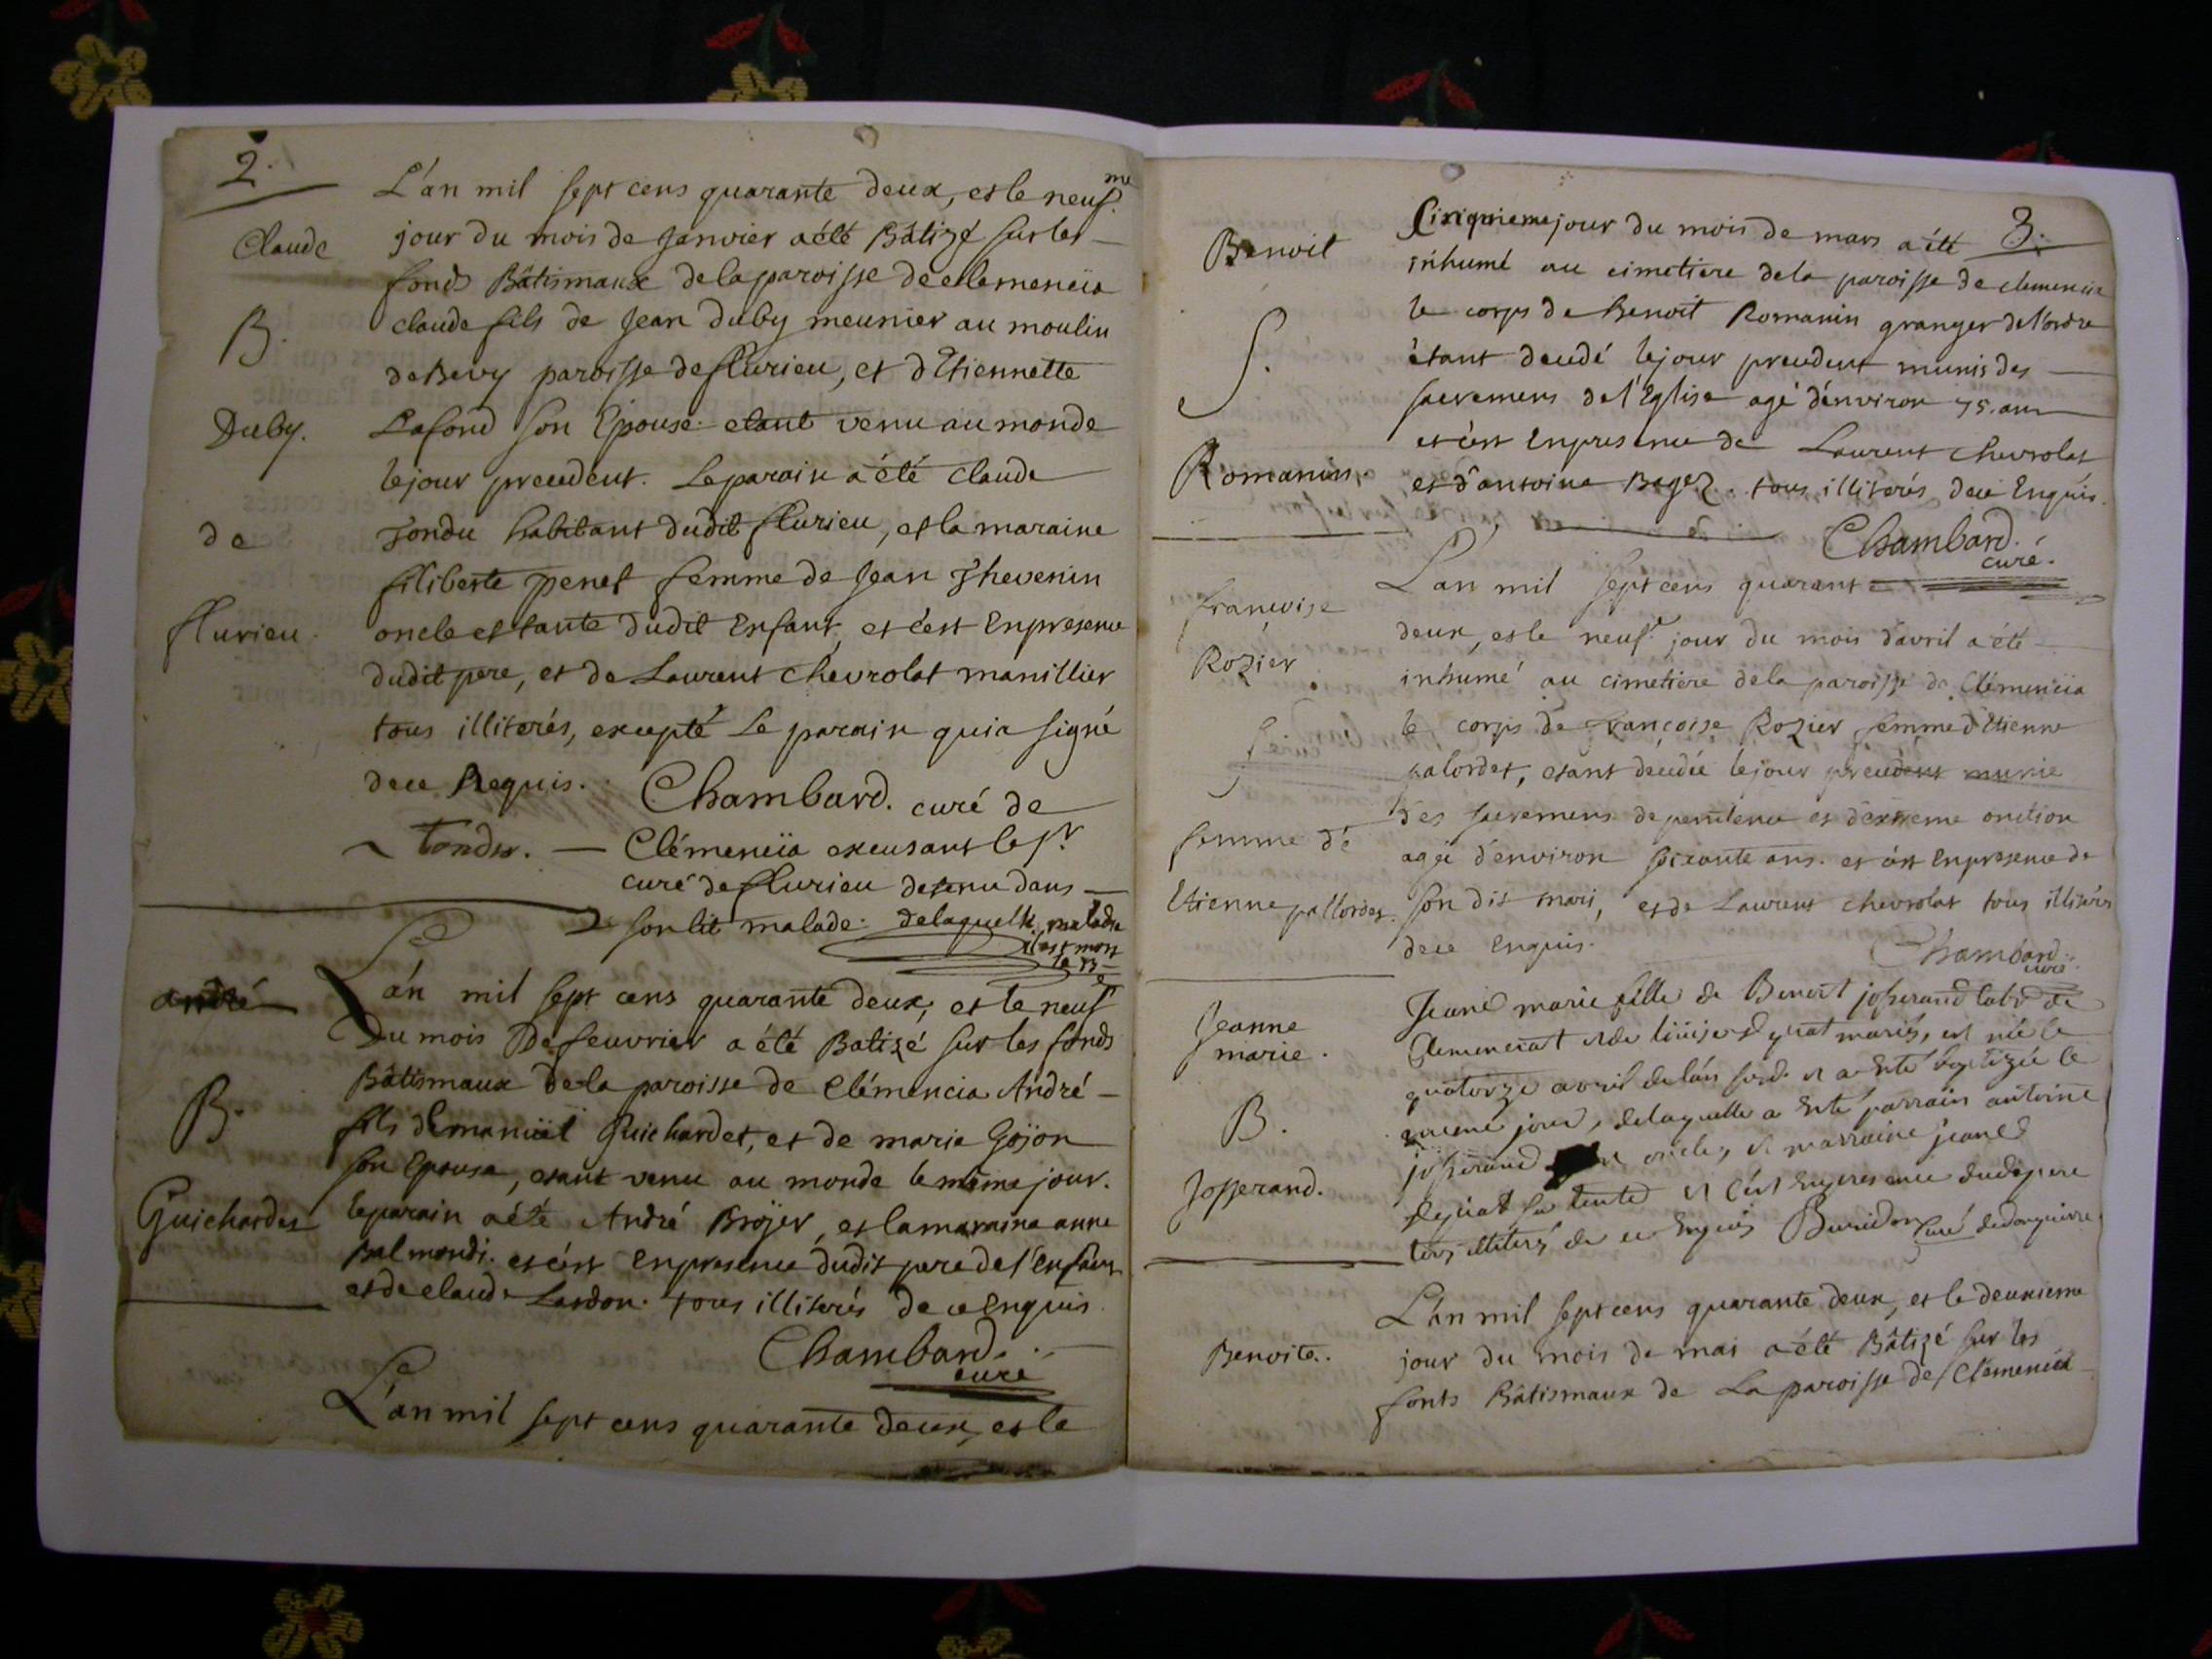 2.
L'an mil sept cens quarante deux, et le neuf.me
Claude
jour du mois de Janvier a été Bâtizé sur les
fonds Bâtismaux de la paroisse de clemencia
B.
claude fils de Jean Duby meunier au moulin
de Bevy paroisse de flurieu, et d'Etiennette
Duby.
Lafond son Epouse etant venu au monde
le jour precedent. Le parain a été claude
de
Tondu habitant dudit flurieu, et la maraine
filiberte penet femme de Jean Thevenin
flurieu.
oncle et tante dudit Enfant, et c'est En presence
dudit pere, et de Laurent chevrolat manillier
tous illiterés, excepté Le parain qui a signé
de ce Requis. Chambard. curé de
Tondu. — Clémencia excusant le sr
curé de flurieu detenu dans
son lit malade. de laquelle maladie
il est mort
le 13
André
L'an mil sept cens quarante deux, et le neuf
Du mois De feuvrier a été Batizé sur les fonds
Bâtismaux de la paroisse de Clémencia André
B.
fils d'Emanuël Guichardet, et de marie Gojon
son Epouse, etant venu au monde le même jour.
Guichardet
le parain a été André Brojer, et la maraine anne
Balmondi. et c'est En presence dudit pere de l'enfant
et de claude Lardon. tous illiterés de ce Enquis.
Chambard.
curé
L'an mil sept cens quarante deux, et le
3.
Cinquieme jour du mois de mars a été
Benoit
inhumé au cimetiere de la paroisse de clemencia
le corps de Benoit Romanin granger de l'ordre
S.
étant decedé le jour precedent munis des
sacremens de l'Eglise agé d'environ 75. ans
et c'est En presence de Laurent chevrolat
Romanin.
et d'antoine Bagez. tous illiterés de ce Enquis.
Chambard.
curé.
L'an mil sept cens quarante
françoise
deux, et le neuf.e jour du mois d'avril a été
Rozier
inhumé au cimetiere de la paroisse de Clémencia
le corps de françoise Rozier femme d'Etienne
S.
palordet, etant decedée le jour precedent munie
des sacremens de penitence et d'extreme onction
femme d'é
agée d'environ soixante ans. et c'est En presence de
Etienne pallordet.
son dit mari, et de Laurent chevrolat tous illiterés
de ce Enquis.
Chambard.
curé.
Jeanne
marie.
Jeane marie fille de Benoit josserand labr de
Clemenciat et de marié, est née le
quatorze avril de l'an susd. et a Esté baptizée le
B.
meme jour, de laquelle a Esté parrain antoine
josserand oncle, et marraine jeane
Josserand.
sa tante et c'est En presence dudit pere
tous illiterés de ce Enquis Buridon curé
L'an mil sept cens quarante deux, et le deuxieme
Benoite.
jour du mois de mai a été Bâtizé sur les
fonts Bâtismaux de La paroisse de Clémencia